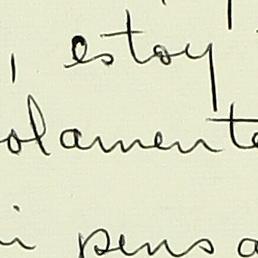 , estoy
olamente
i pensa